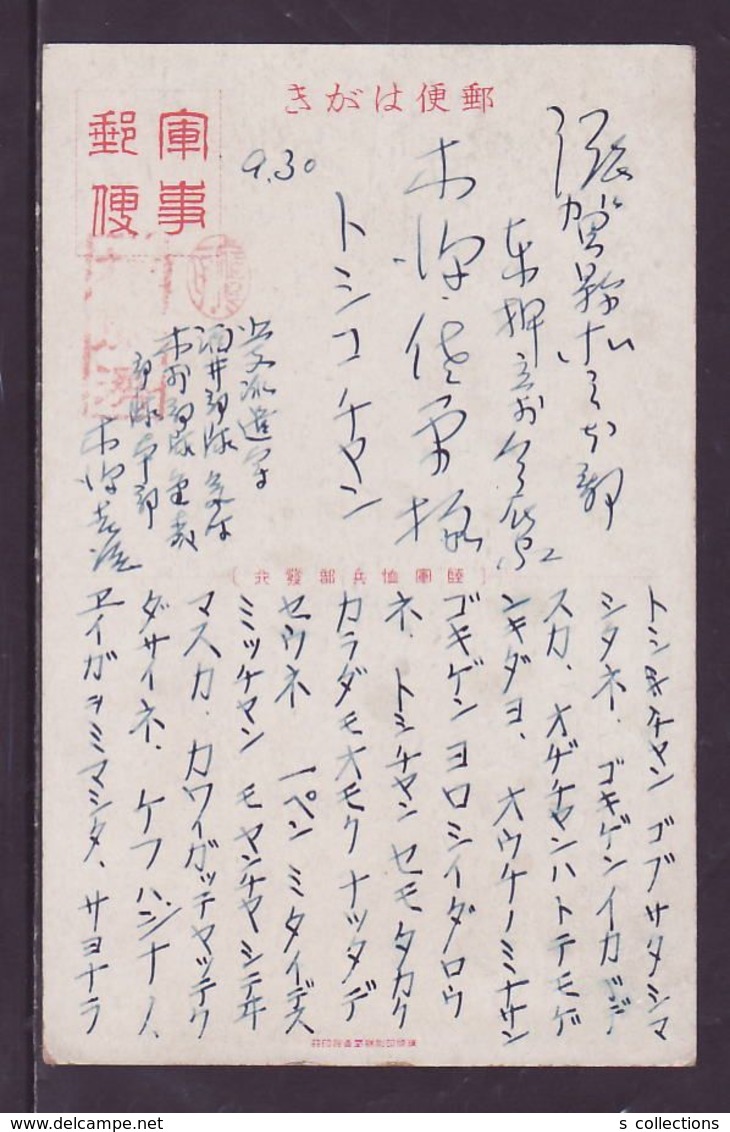 郵便はがき
軍事
郵便
9.30
滋賀縣犬上郡
東押立村
木澤 様
トシコチヤン
派遣軍
酒井部隊
部隊
部隊本部
木澤
〔陸軍恤兵部發行〕
トシコチヤン ゴブサタシマ
シタネ、ゴキゲンイカガデ
スカ、オヂチヤンハトテモゲ
ンキダヨ、オウチノミナサン
ゴキゲンヨロシイダロウ
ネ、トシチヤンセモタカク
カラダモオモクナツタデ
セウネ 一ペンミタイデス
ミツチヤンモヤンチヤシテヰ
マスカ、カワイガツテヤツテク
ダサイネ、ケフハジナノ
ヱイガヲミマシタ、サヨナラ
s collections